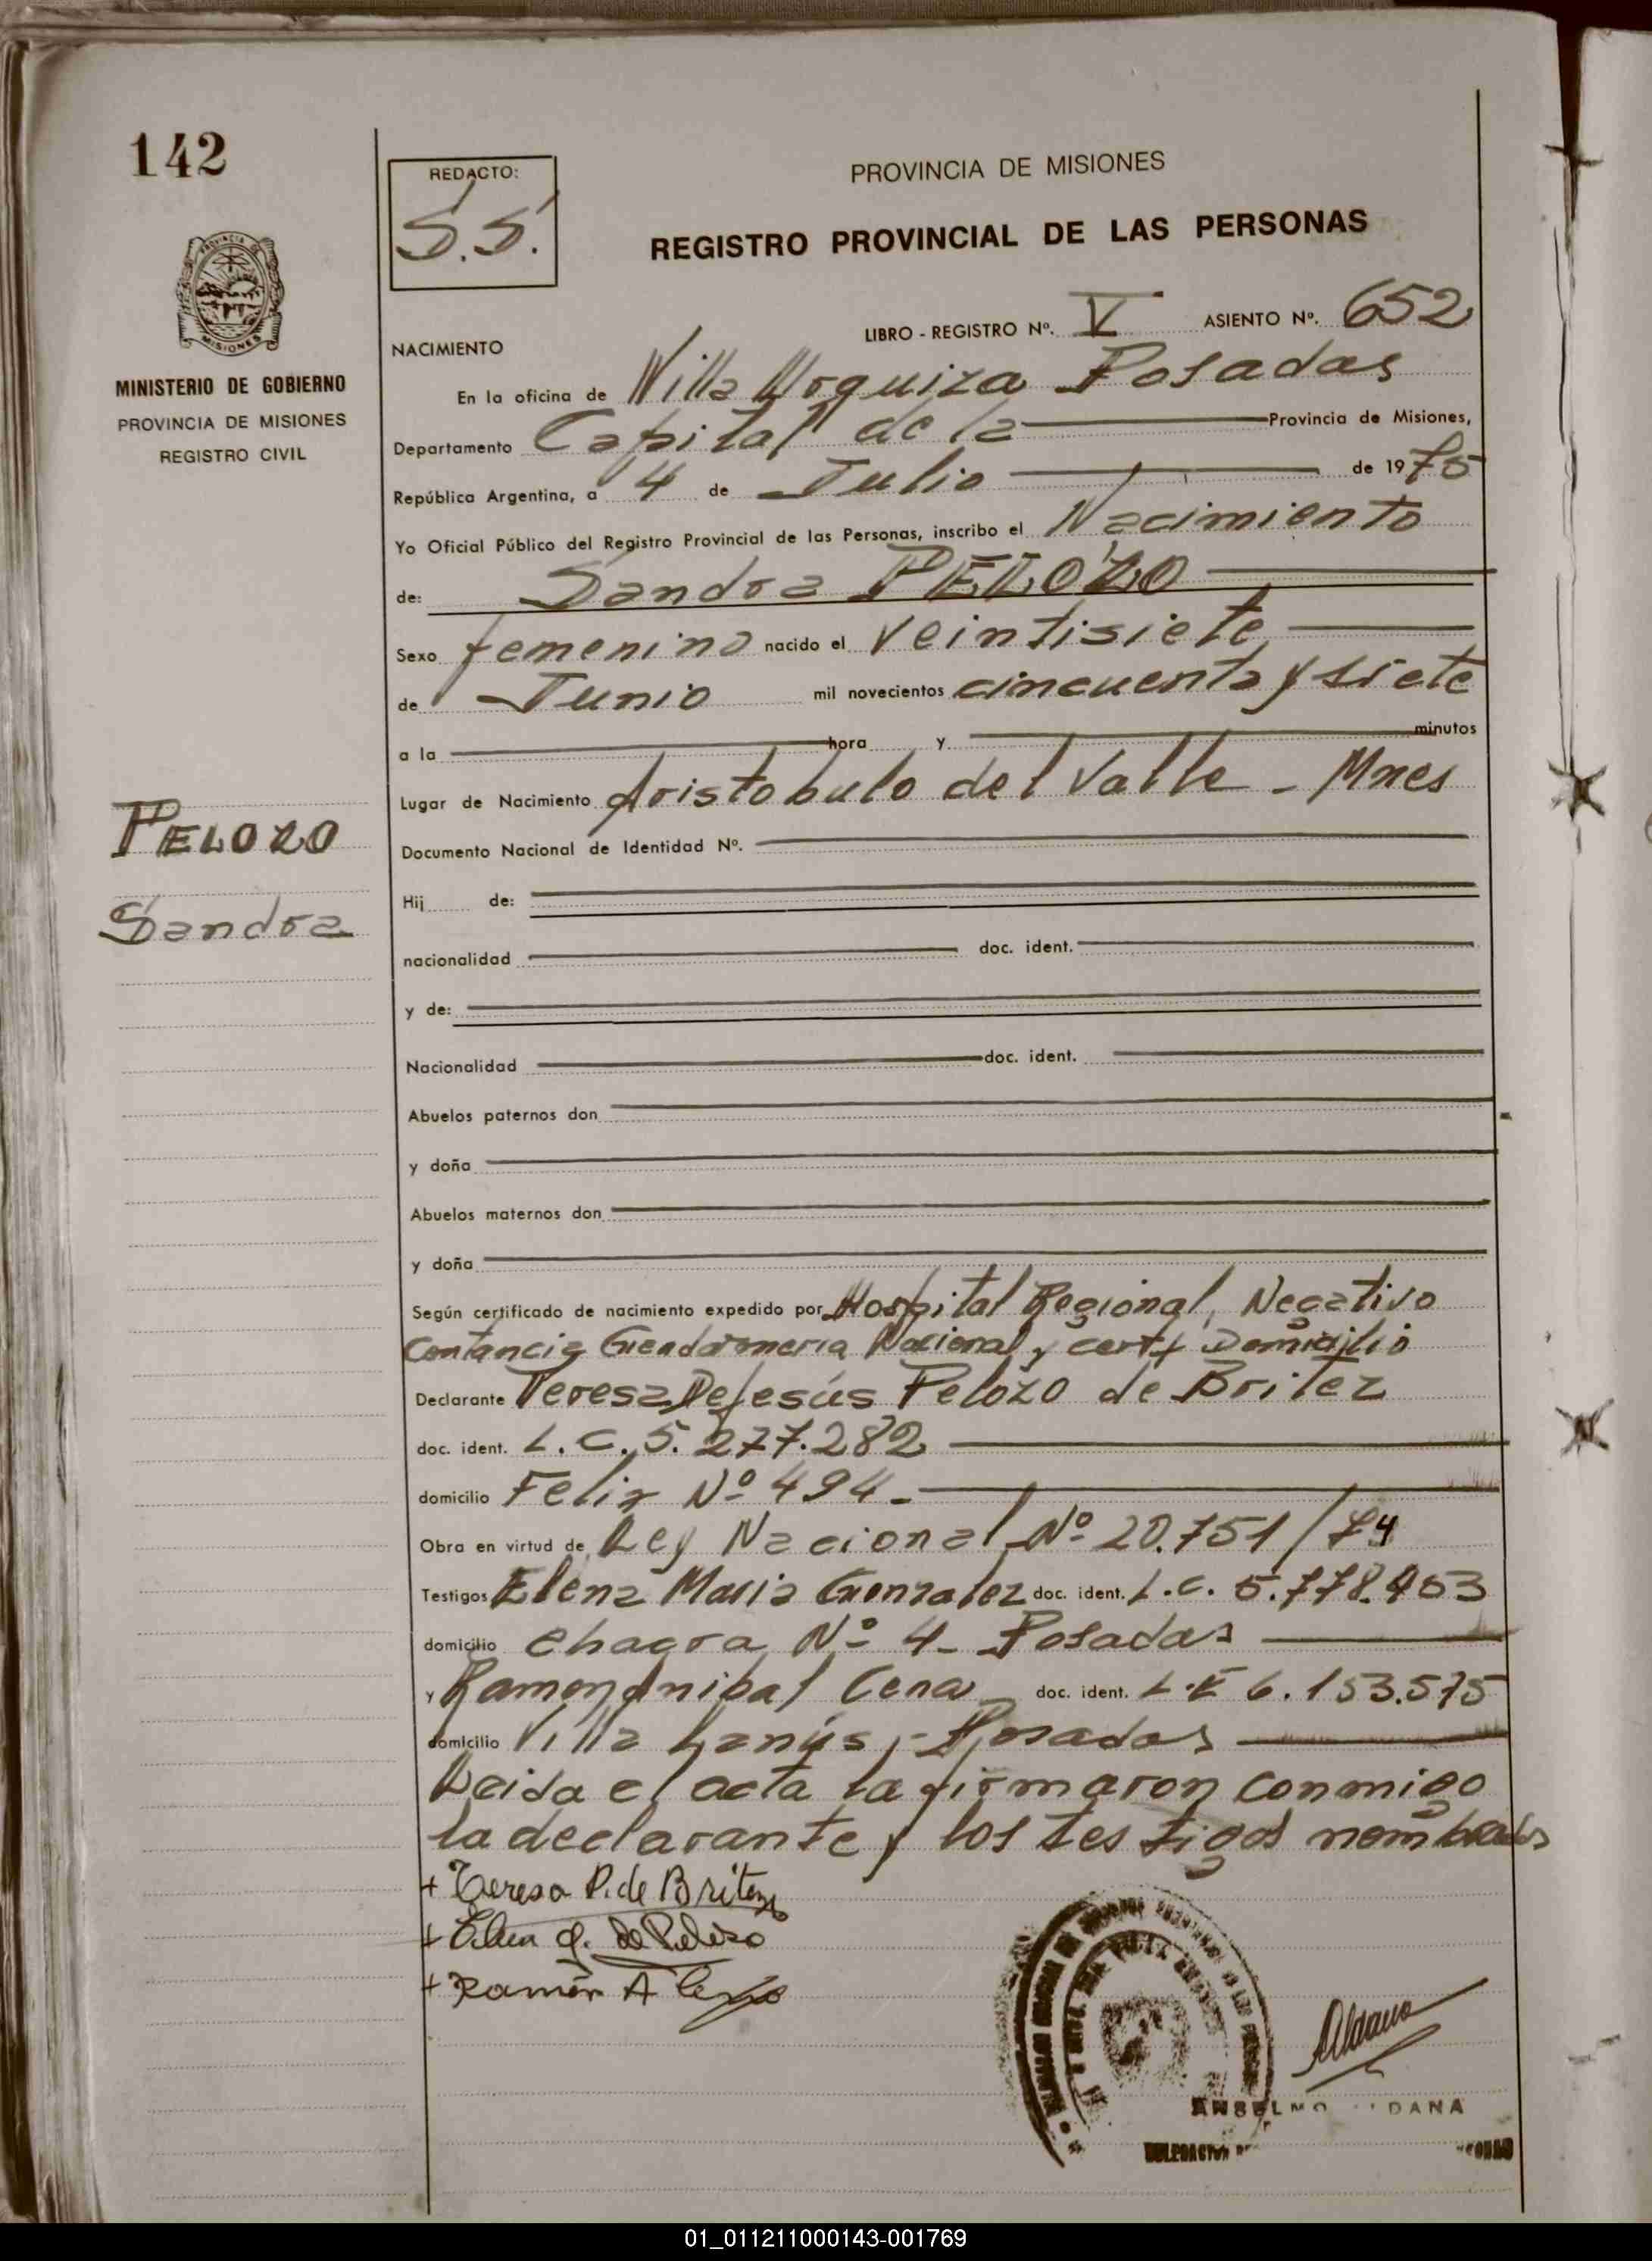 142
REDACTO:
S.S.
PROVINCIA DE MISIONES
REGISTRO PROVINCIAL DE LAS PERSONAS
PROVINCIA DE
MISIONES
MINISTERIO DE GOBIERNO
PROVINCIA DE MISIONES
REGISTRO CIVIL
LIBRO - REGISTRO Nº. V ASIENTO Nº. 652
NACIMIENTO
En la oficina de Villa Urquiza Posadas
Departamento Capital de la Provincia de Misiones,
República Argentina, a 4 de Julio de 1975
Yo Oficial Público del Registro Provincial de las Personas, inscribo el Nacimiento
de: Sandra PELOZO
Sexo femenino nacido el veintisiete
de Junio mil novecientos cincuenta y siete
a la hora y minutos
Lugar de Nacimiento Aristobulo del Valle - Mnes
PELOZO
Sandra
Documento Nacional de Identidad Nº.
Hij de:
nacionalidad doc. ident.
y de:
Nacionalidad doc. ident.
Abuelos paternos don
y doña
Abuelos maternos don
y doña
Según certificado de nacimiento expedido por Hospital Regional, Negativo
Contancia Gendarmeria Nacional y certf Domicilio
Declarante Teresa De Jesús Pelozo de Britez
doc. ident. L.C. 5.277.282
domicilio Feliz Nº 494 -
Obra en virtud de Ley Nacional Nº 20.751/74
Testigos Elena Maria Gonzalez doc. ident. L.C. 5.778.453
domicilio Chacra Nº 4 - Posadas
y Ramon Anibal Cena doc. ident. L.E 6.153.575
domicilio Villa Lanús, - Posadas
Leida el acta la firmaron conmigo
la declarante y los testigos nombrados
+ Teresa P. de Britez
+ Elena G. de Pelozo
+ Ramón A
Aldana
ANSELMO DANA
01_011211000143-001769